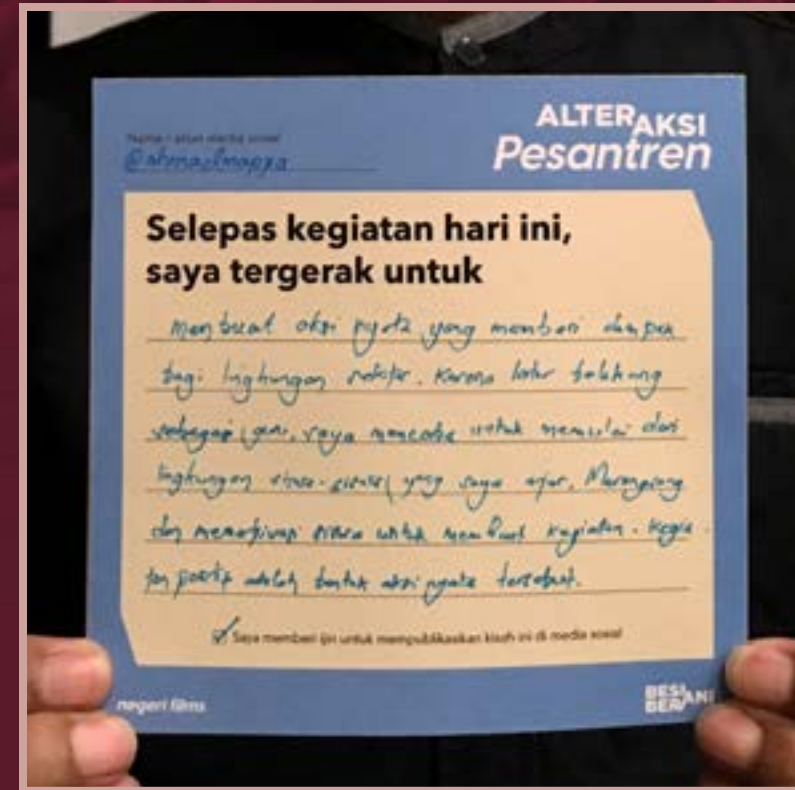 Nama / akun media sosial
@ahmadmapya
ALTERAKSI
Pesantren
Selepas kegiatan hari ini,
saya tergerak untuk
membuat aksi nyata yang memberi dampak
bagi lingkungan sekitar. Karena latar belakang
sebagai guru, saya mencoba untuk memulai dari
lingkungan siswa-siswi yang saya ajar. Merangsang
dan memotivasi siswa untuk membuat kegiatan-kegia-
tan positip adalah bentuk aksi nyata tersebut.
Saya memberi ijin untuk mempublikasikan kisah ini di media sosial
negeri films
BESI
BERANI